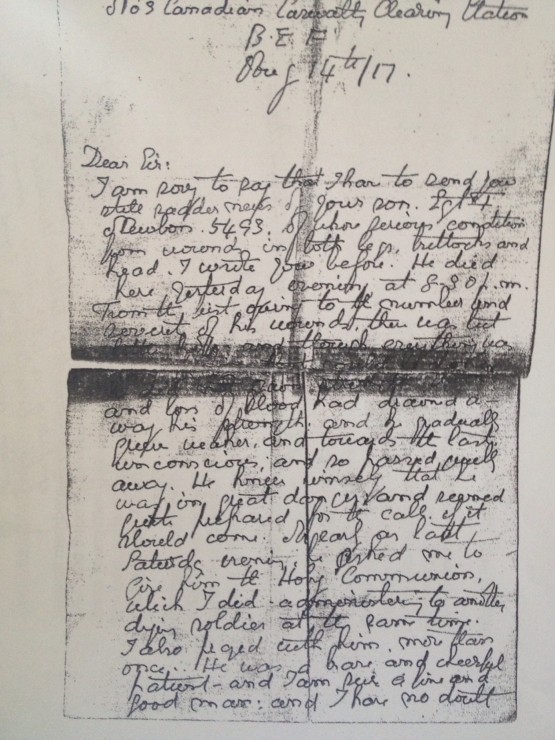 No 3 Canadian Casualty Clearing Station
B.E.F.
Aug 14th/17.
Dear Sir:
I am sorry to say that I have to send you
sadder news of your son. Sgt
5493. of whose serious condition
from wounds in both legs, buttocks and
head. I wrote you before. He died
here yesterday evening at 8.30 p.m.
From the first owing to the number and
of his wounds, there was but
little hope and though everything was
and loss of blood had drained a-
way his strength, and he gradually
grew weaker, and towards the last
unconscious, and so passed quietly
away. He himself that he
was in great danger and seemed
quite prepared for the call if it
should come. as last
Saturday evening he asked me to
give him the Holy Communion,
which I did administering to another
dying soldier at the same time.
I also with him more than
once. He was a brave and cheerful
patient - and I am sure a fine and
good man: and I have no doubt